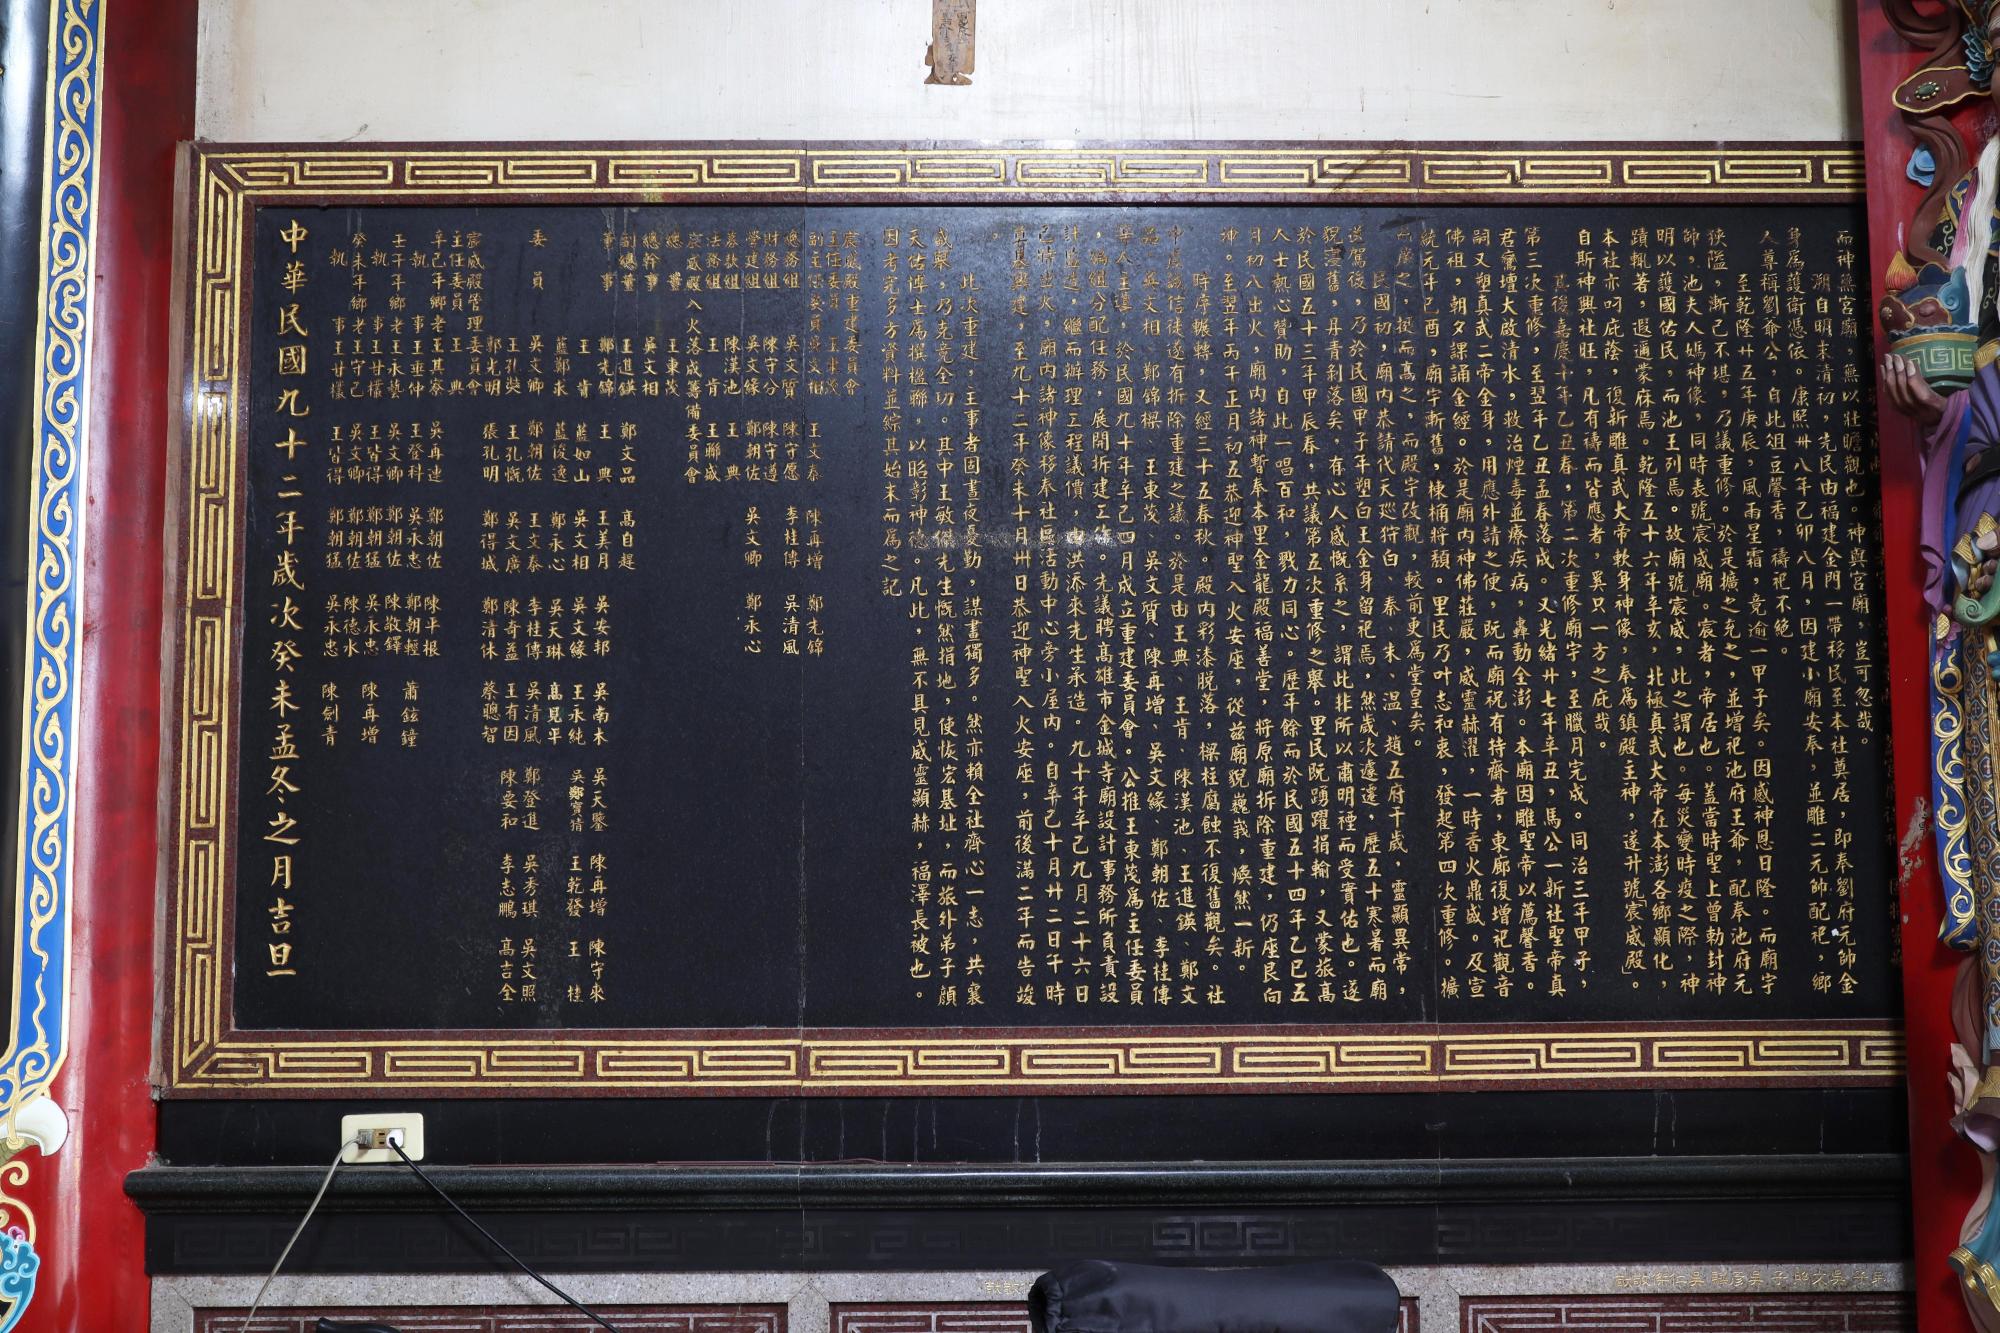 而神無宮廟，無以壯瞻觀也。神與宮廟，豈可忽哉。
溯自明末清初，先民由福建金門一帶移民至本社奠居，即奉劉府元帥金
身為護衛憑依。康熙卅八年己卯八月，因建小廟安奉，並雕二元帥配祀，鄉
人尊稱劉爺公，自此俎豆馨香，禱祀不絕。
至乾隆廿五年庚辰，風雨星霜，竞逾一甲子矣。因感神恩日隆。而廟宇
狹隘，漸已不堪，乃議重修。於是擴之充之，並增祀池府王爺，配奉池府元
帥，池夫人媽神像，同時表號「宸威廟」。宸者，帝居也。蓋當時聖上曾勅封神
明以護國佑民，而池王列焉。故廟號宸威，此之謂也。每災變時疫之際，神
蹟輒著，遐邇蒙庥焉。乾隆五十六年辛亥，北極真武大帝在本澎各鄉顯化，
本社亦叼庇蔭，復新雕真武大帝軟身神像，奉為鎮殿主神，遂升號「宸威殿」。
自斯神興社旺，凡有禱而皆應者，異只一方之庇哉。
其後嘉慶十年乙丑春，第二次重修廟宇，至臘月完成。同治三年甲子，
第三次重修，至翌年乙丑孟春落成。又光緒廿七年辛丑，馬公一新社聖帝真
君鸞壇大啟清水，救治煙毒並療疾病，轟動全澎。本廟因雕聖帝以薦馨香。
嗣又塑真武二帝金身，用應外請之便，既而廟祝有持齋者，東廊復增祀觀音
佛祖，朝夕課誦金經。於是廟內神佛莊嚴，威靈赫濯，一時香火鼎盛。及宣
統元年己酉，廟宇漸舊，棟桷將頹。里民乃叶志和衷，發起第四次重修。擴
而廣之，挺而高之，而殿宇改觀，較前更為堂皇矣。
民國初，廟內恭請代天巡狩白、秦、朱、溫、趙五府千歲，靈顯異常，
送駕後，乃於民國甲子年塑白王金身留祀焉，然歲次遽遷，歷五十寒暑而廟
貌漶舊，丹青剝落矣，有心人感慨系之，謂此非所以肅明禋而受實佑也。遂
於民國五十三年甲辰春，共議第五次重修之舉。里民既踴躍捐輸，又蒙旅高
人士熱心贊助，自此一唱百和，戮力同心。歷年餘而於民國五十四年乙巳五
月初八出火，廟內諸神暫奉本里金龍殿福善堂，將原廟拆除重建，仍座艮向
坤。至翌年丙午正月初五恭迎神聖入火安座，從茲廟貌巍峩，煥然一新。
時序輾轉，又經三十五春秋。殿內彩漆脫落，樑柱腐蝕不復舊觀矣。社
中虔誠信徒遂有拆除重建之議。於是由王典、王肯、陳漢池、王進鍈、鄭文
品、吳文相、鄭錦樑、王東茂、吳文質、陳再增、吳文緣、鄭朝佐、李桂傳
等人主導，於民國九十年辛己四月成立重建委員會。公推王東茂為主任委員
，編組分配任務，展開拆建工作。先議聘高雄市金城寺廟設計事務所負責設
計監造，繼而辦理工程議價，由洪添來先生承造。九十年辛己九月二十六日
己時出火，廟內諸神像移奉社區活動中心旁小屋內。自辛己十月廿二日午時
重建興建，至九十二年癸未十月卅日恭迎神聖入火安座，前後滿二年而告竣
。
此次重建，主事者固晝夜憂勤，謀畫獨多。然亦賴全社齊心一志，共襄
盛舉，乃克竞全功。其中王敏傑先生慨然捐地，使恢宏基址，而旅外弟子顏
天佑博士為撰楹聯，以昭彰神德。凡此，無不具見威靈顯赫，福澤長被也。
因考究多方資料並綜其始末而為之記
宸威殿重建委員會
主任委員　王東茂
副主任委員　吳文相　王文泰　陳再增　鄭光錦
總務組　吳文質　陳守愿　李桂傳　吳清風
財務組　陳守分　陳守遵
營建組　吳文緣　鄭朝佐　吳文卿　鄭永心
募款組　陳漢池　王典
法務組　王肯　王聯盛
宸威殿入火落成籌備委員會
總董　王東茂
總幹事　吳文相
副總董　王進鍈　鄭文品　高自趕
事事　鄭光錦　王典　王美月　吳安邦　吳南木　吳天鑒　陳再增　陳守來
王肯　藍如山　吳文相　吳文緣　王永純　吳鄭寶猜　王乾發　王桂
藍鄭求　藍俊逸　鄭永心　吳天琳　高見平
委員　吳文卿　鄭朝佐　王文泰　李桂傳　吳清風　鄭登進　吳秀琪　吳文照
王孔奘　王孔慨　吳文廣　陳奇益　王有因　陳要和　李志鵬　高吉全
郭光明　張孔明　鄭得城　鄭清休　蔡聰智
宸威殿管理委員會
主任委員　王典
辛己年鄉老　王其寮　吳再連　鄭朝佐　陳平報
執事　王垂仲　王登科　吳永忠　鄭朝輕　蕭鉉鐘
壬午年鄉老　王永藝　吳文卿　鄭朝佐　陳敬鐸
執事　王甘檨　王皆得　鄭朝猛　吳永忠　陳再增
癸未年鄉老　王守己　吳文卿　鄭朝佐　陳德水
執事　王甘檨　王皆得　鄭朝猛　吳永忠　陳劍青
中華民國九十二年歲次癸未孟冬之月吉旦